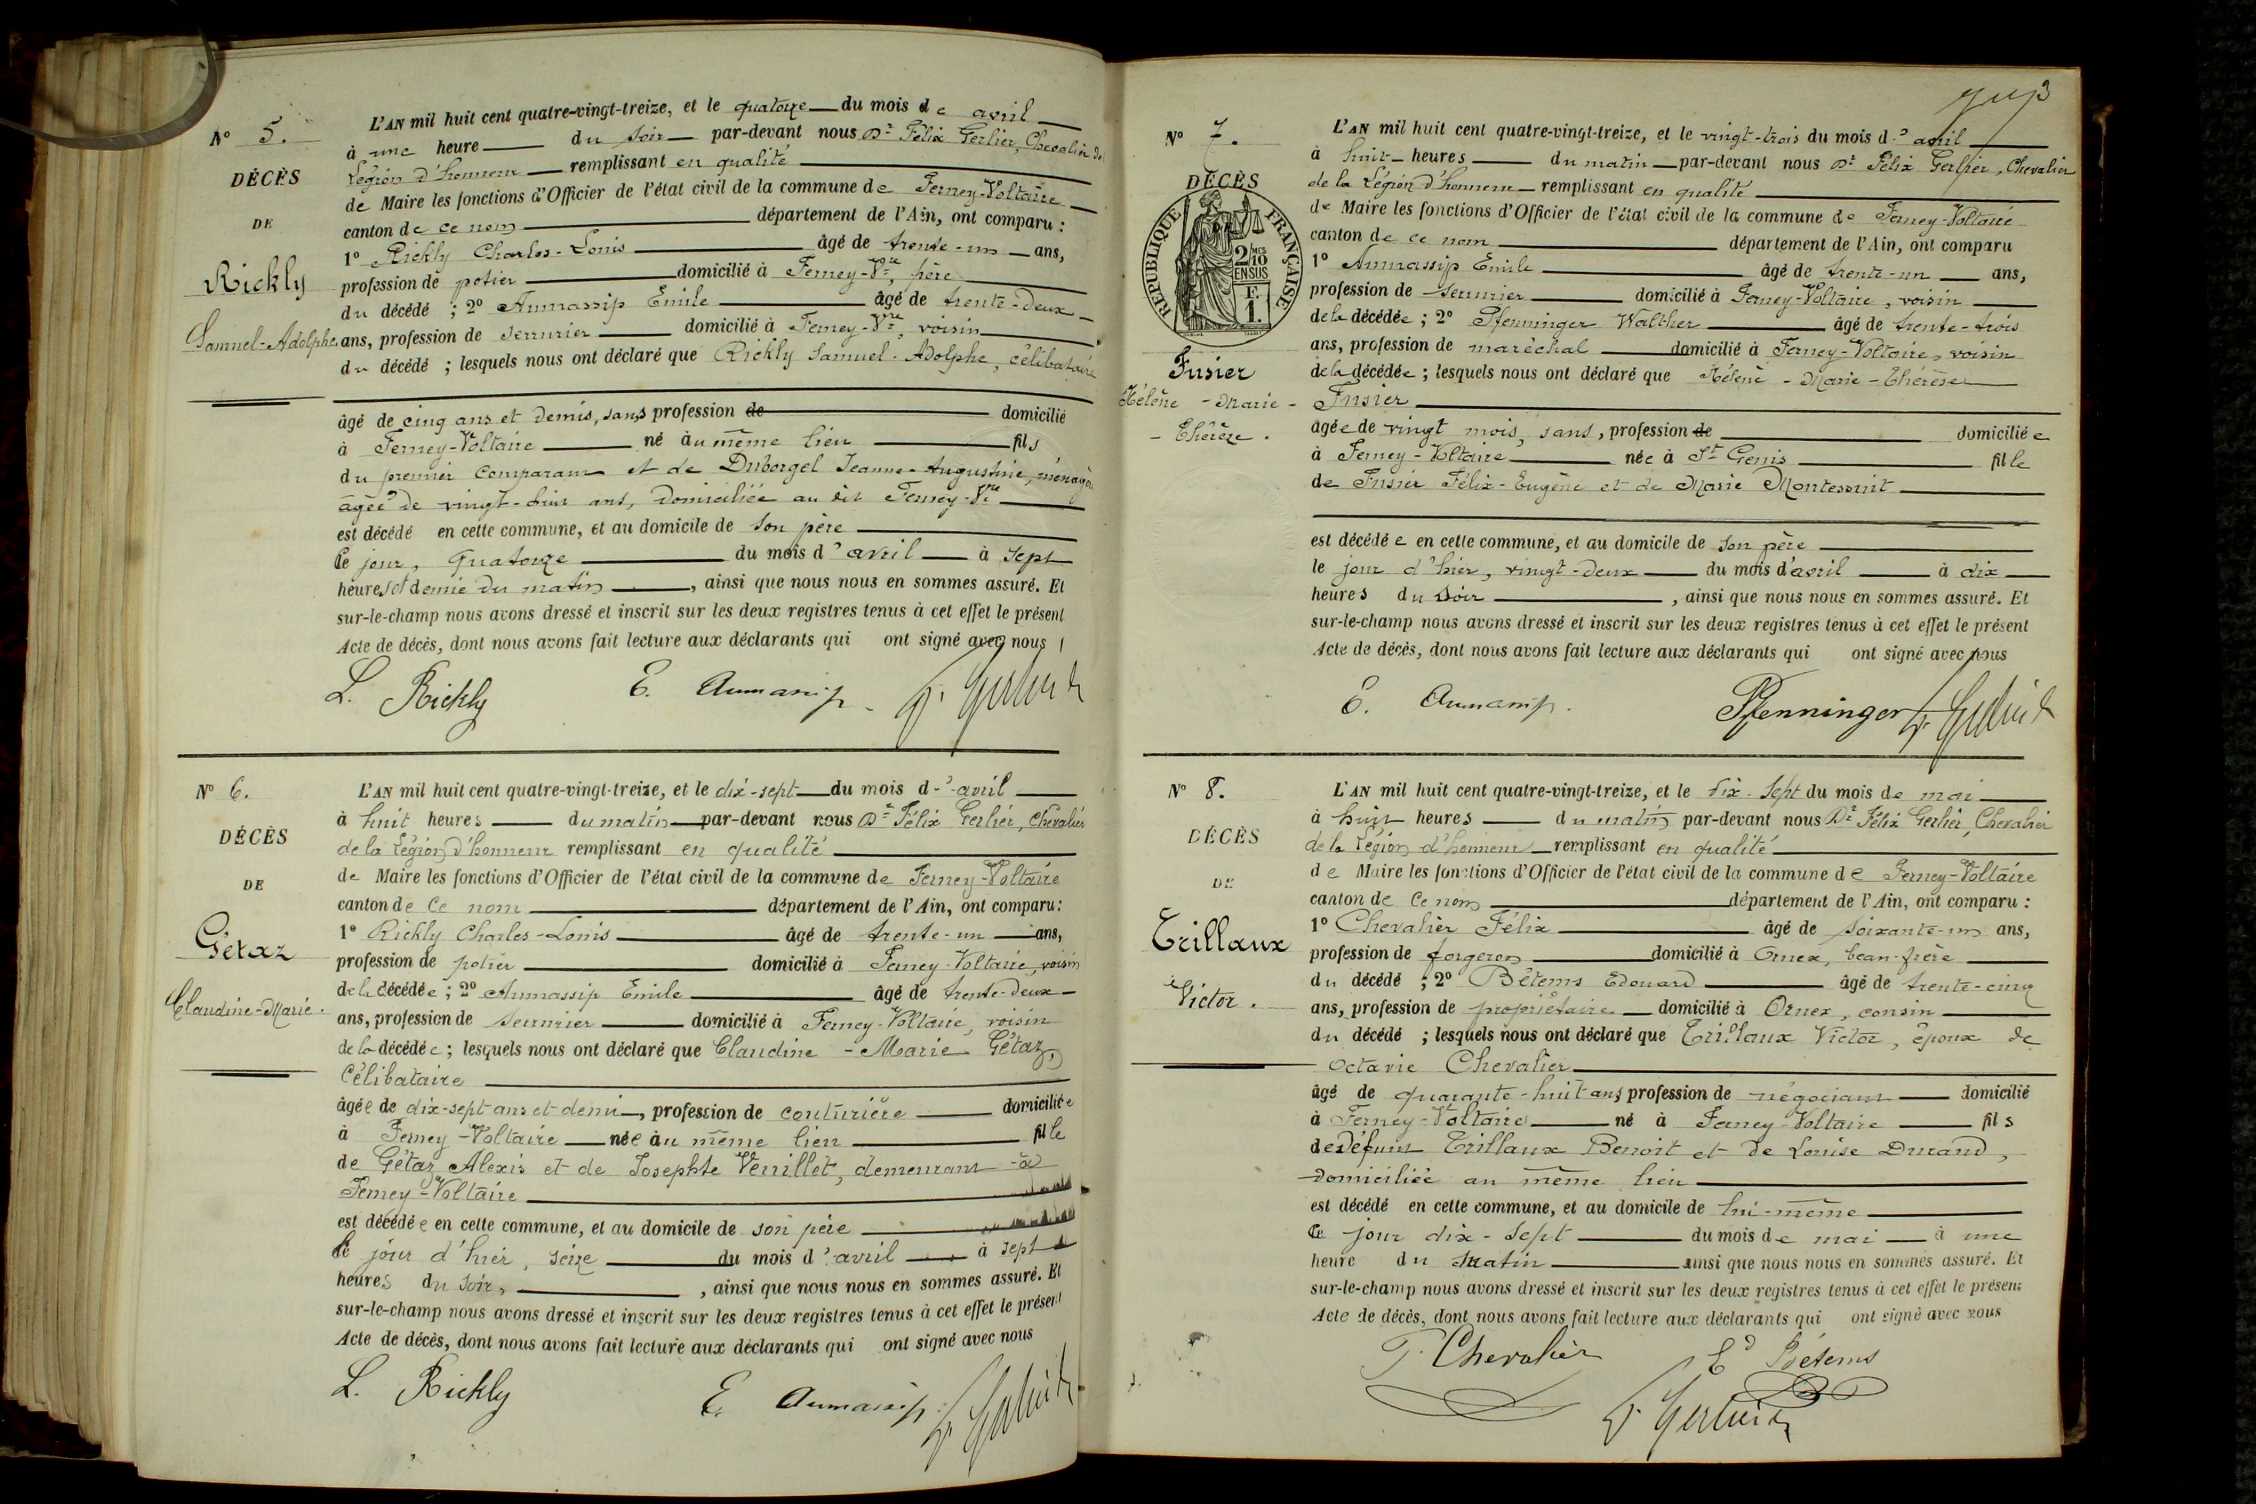 N° 5.
DÉCÈS
DE
Rickly
Samuel-Adolphe
L'AN mil huit cent quatre-vingt-treize, et le quatorze du mois de avril
à une heure du soir par-devant nous Dr Félix Gerlier, Chevalier de
Légion d'honneur remplissant en qualité
de Maire les fonctions d'Officier de l'état civil de la commune de Ferney-Voltaire
canton de ce nom département de l'Ain, ont comparu :
1° Rickly Charles-Louis âgé de trente-un ans,
profession de potier domicilié à Ferney-Vre, père
du décédé ; 2° Aumassip Emile âgé de trente-deux
ans, profession de serrurier domicilié à Ferney-Vre, voisin
du décédé ; lesquels nous ont déclaré que Rickly Samuel-Adolphe, célibataire
âgé de cinq ans et demis, sans profession de domicilié
à Ferney-Voltaire né au même lieu fils
du premier comparant et de Duborgel Jeanne-Augustine, ménagère
âgée de vingt-huit ans, domiciliée au dit Ferney-Vre
est décédé en cette commune, et au domicile de son père
Ce jour, quatorze du mois d'avril à sept
heures et demie du matin, ainsi que nous nous en sommes assuré. Et
sur-le-champ nous avons dressé et inscrit sur les deux registres tenus à cet effet le présent
Acte de décès, dont nous avons fait lecture aux déclarants qui ont signé avec nous
L. Rickly E. Aumassip Dr Gerlier
N° 6.
DÉCÈS
DE
Gétaz
Claudine-Marie.
L'AN mil huit cent quatre-vingt-treize, et le dix-sept du mois d'avril
à huit heures du matin par-devant nous Dr Félix Gerlier, Chevalier
de la Légion d'honneur remplissant en qualité
de Maire les fonctions d'Officier de l'état civil de la commune de Ferney-Voltaire
canton de ce nom département de l'Ain, ont comparu :
1° Rickly Charles-Louis âgé de trente-un ans,
profession de potier domicilié à Ferney-Voltaire, voisin
de la décédée ; 2° Aumassip Emile âgé de trente-deux
ans, profession de serrurier domicilié à Ferney-Voltaire, voisin
de la décédée ; lesquels nous ont déclaré que Claudine-Marie Gétaz,
célibataire
âgée de dix-sept ans et demi, profession de couturière domiciliée
à Ferney-Voltaire née au même lieu fille
de Gétaz Alexis et de Josephte Verrillet, demeurant à
Ferney-Voltaire
est décédée en cette commune, et au domicile de son père
le jour d'hier, seize du mois d'avril à sept
heures du soir, ainsi que nous nous en sommes assuré. Et
sur-le-champ nous avons dressé et inscrit sur les deux registres tenus à cet effet le présent
Acte de décès, dont nous avons fait lecture aux déclarants qui ont signé avec nous
L. Rickly E. Aumassip Dr Gerlier
N° 7.
DÉCÈS
RÉPUBLIQUE FRANÇAISE
2/10 MES
EN SUS
F.
1.
Fusier
Hélène-Marie-
-Thérèze.
L'AN mil huit cent quatre-vingt-treize, et le vingt-trois du mois d'avril
à huit heures du matin par-devant nous Dr Félix Gerlier, Chevalier
de la Légion d'honneur remplissant en qualité
de Maire les fonctions d'Officier de l'état civil de la commune de Ferney-Voltaire
canton de ce nom département de l'Ain, ont comparu
1° Aumassip Emile âgé de trente-un ans,
profession de serrurier domicilié à Ferney-Voltaire, voisin
de la décédée ; 2° Pfenninger Walther âgé de trente-trois
ans, profession de maréchal domicilié à Ferney-Voltaire, voisin
de la décédée ; lesquels nous ont déclaré que Hélène-Marie-Thérèse
Fusier
âgée de vingt mois, sans, profession de domiciliée
à Ferney-Voltaire née à St Genis fille
de Fusier Félix-Eugène et de Marie Montessuit
est décédée en cette commune, et au domicile de son père
le jour d'hier, vingt-deux du mois d'avril à dix
heures du soir, ainsi que nous nous en sommes assuré. Et
sur-le-champ nous avons dressé et inscrit sur les deux registres tenus à cet effet le présent
Acte de décès, dont nous avons fait lecture aux déclarants qui ont signé avec nous
E. Aumassip. Pfenninger Dr Gerlier
N° 8.
DÉCÈS
DE
Trillaux
Victor.
L'AN mil huit cent quatre-vingt-treize, et le dix-sept du mois de mai
à huit heures du matin par-devant nous Dr Félix Gerlier, Chevalier
de la Légion d'honneur remplissant en qualité
de Maire les fonctions d'Officier de l'état civil de la commune de Ferney-Voltaire
canton de ce nom département de l'Ain, ont comparu :
1° Chevalier Félix âgé de soixante-un ans,
profession de forgeron domicilié à Ornex, beau-frère
du décédé ; 2° Bétems Edouard âgé de trente-cinq
ans, profession de propriétaire domicilié à Ornex, cousin
du décédé ; lesquels nous ont déclaré que Trillaux Victor, époux de
Octavie Chevalier
âgé de quarante-huit ans profession de négociant domicilié
à Ferney-Voltaire né à Ferney-Voltaire fils
de défunt Trillaux Benoit et de Louise Durand,
domiciliée au même lieu
est décédé en cette commune, et au domicile de lui-même
Ce jour dix-sept du mois de mai à une
heure du matin ainsi que nous nous en sommes assuré. Et
sur-le-champ nous avons dressé et inscrit sur les deux registres tenus à cet effet le présent
Acte de décès, dont nous avons fait lecture aux déclarants qui ont signé avec nous
F. Chevalier Ed Bétems
Dr Gerlier